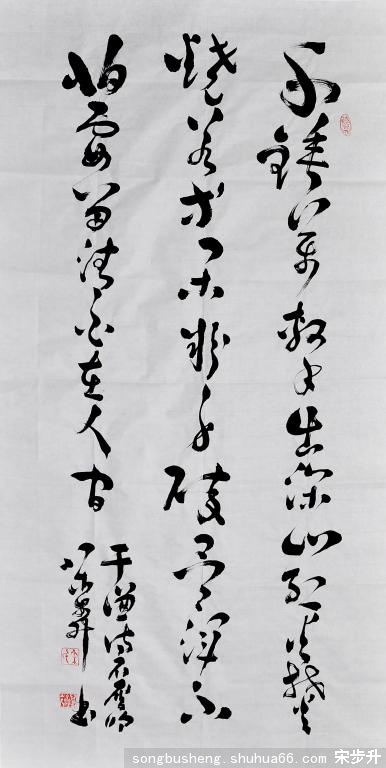 千錘萬擊出深山烈火焚
燒若等閒粉身碎骨渾不
怕要留清白在人间
于謙詩石灰吟
步升书
songbusheng.shuhua66.com 宋步升